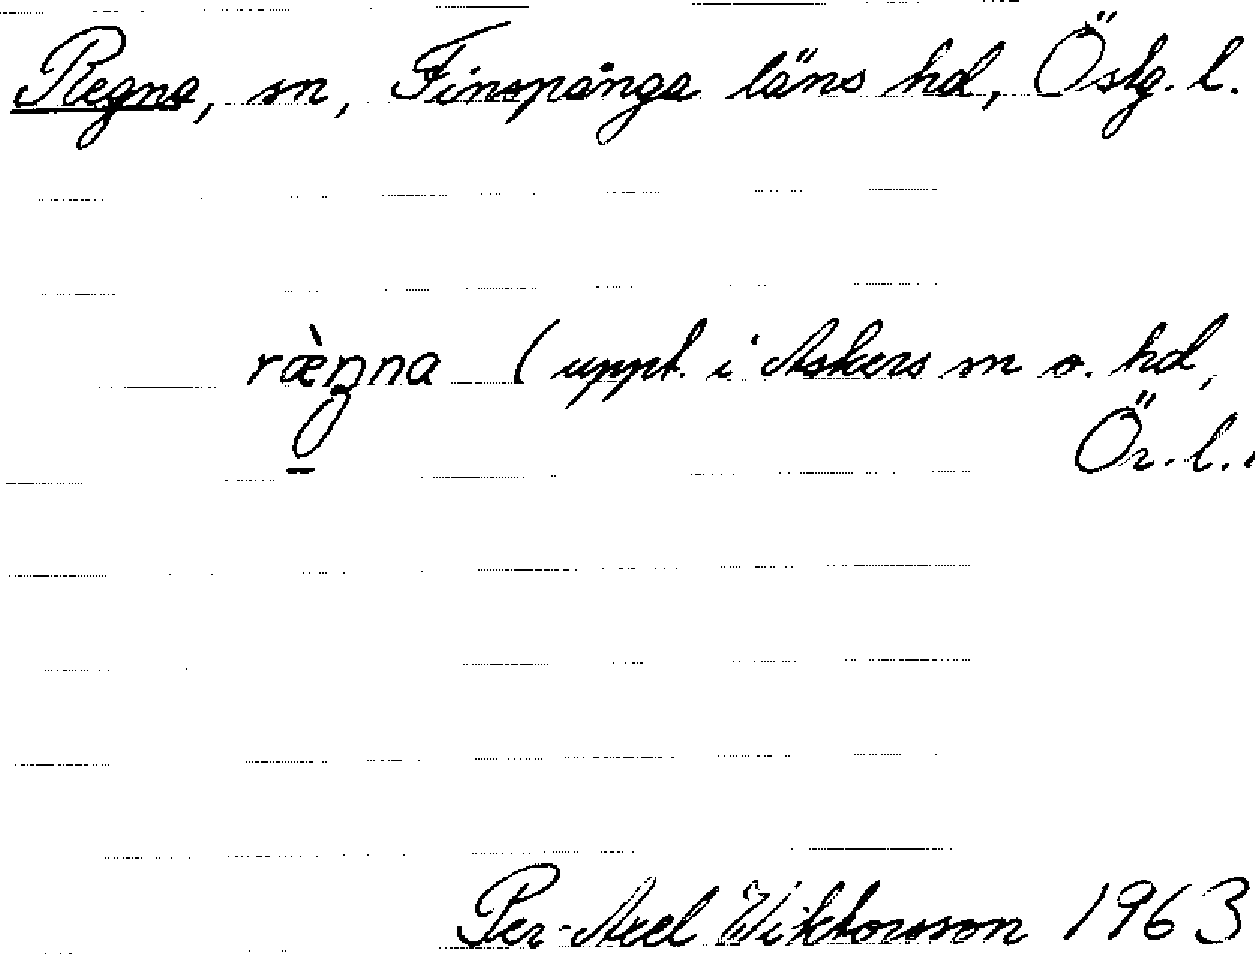 Regna, sn, Finspånga läns hd, Östg. l.
ræ̀ŋna (uppt. i Askers sn o. hd,
Ör. l.)
Per-Axel Wiktorsson 1963